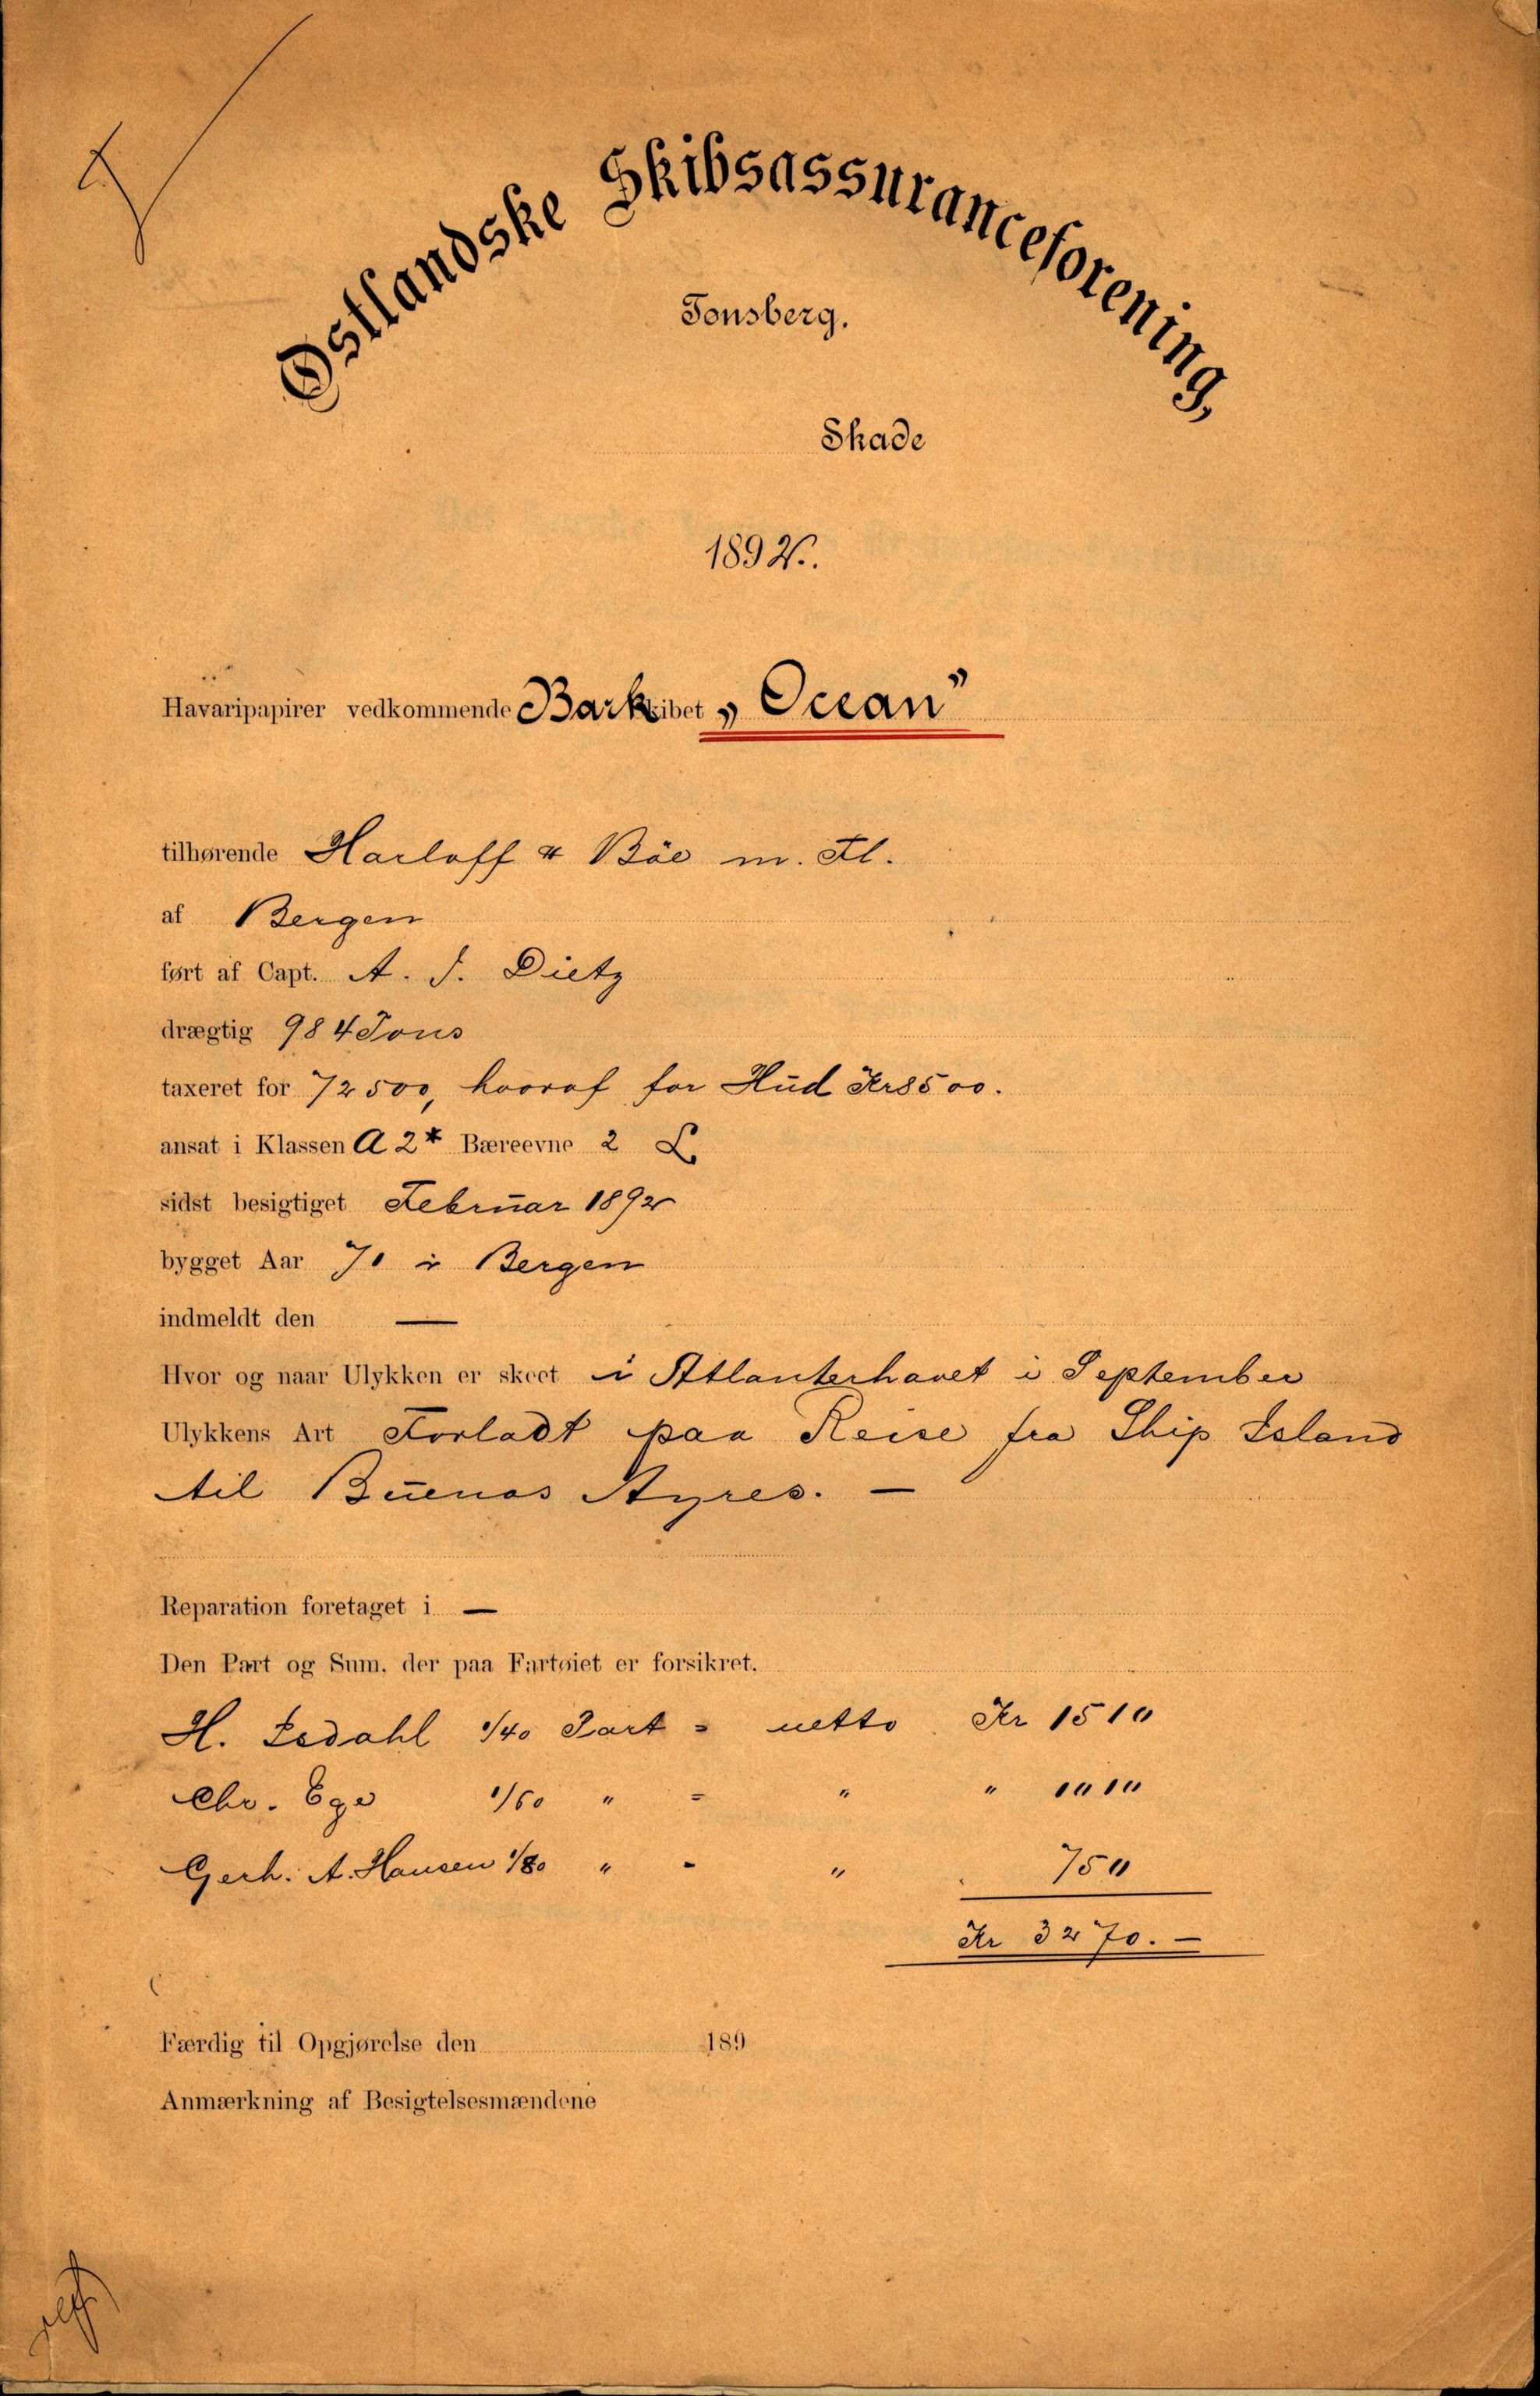 Østlandske Skibsassuranceforening,
Tønsberg.
Skade
1892.
Havaripapirer vedkommende Barkskibet „Ocean”
tilhørende Harloff & Böe m. Fl.
af Bergen
ført af Capt. A. J. Dietz
drægtig 984 Tons
taxeret for 72500, hvoraf for Hud Kr 8500.
ansat i Klassen A 2* Bæreevne 2 L
sidst besigtiget Februar 1892
bygget Aar 70 i Bergen
indmeldt den —
Hvor og naar Ulykken er skeet i Atlanterhavet i September
Ulykkens Art Forladt paa Reise fra Ship Island
til Buenos Ayres. —
Reparation foretaget i —
Den Part og Sum, der paa Fartøiet er forsikret.
H. Isdahl 1/40 Part = netto Kr 1510
Chr. Ege 1/60 " = " " 1010
Gerh. A. Hansen 1/80 " - " 750
Kr 3270. —
Færdig til Opgjørelse den 189
Anmærkning af Besigtelsesmændene